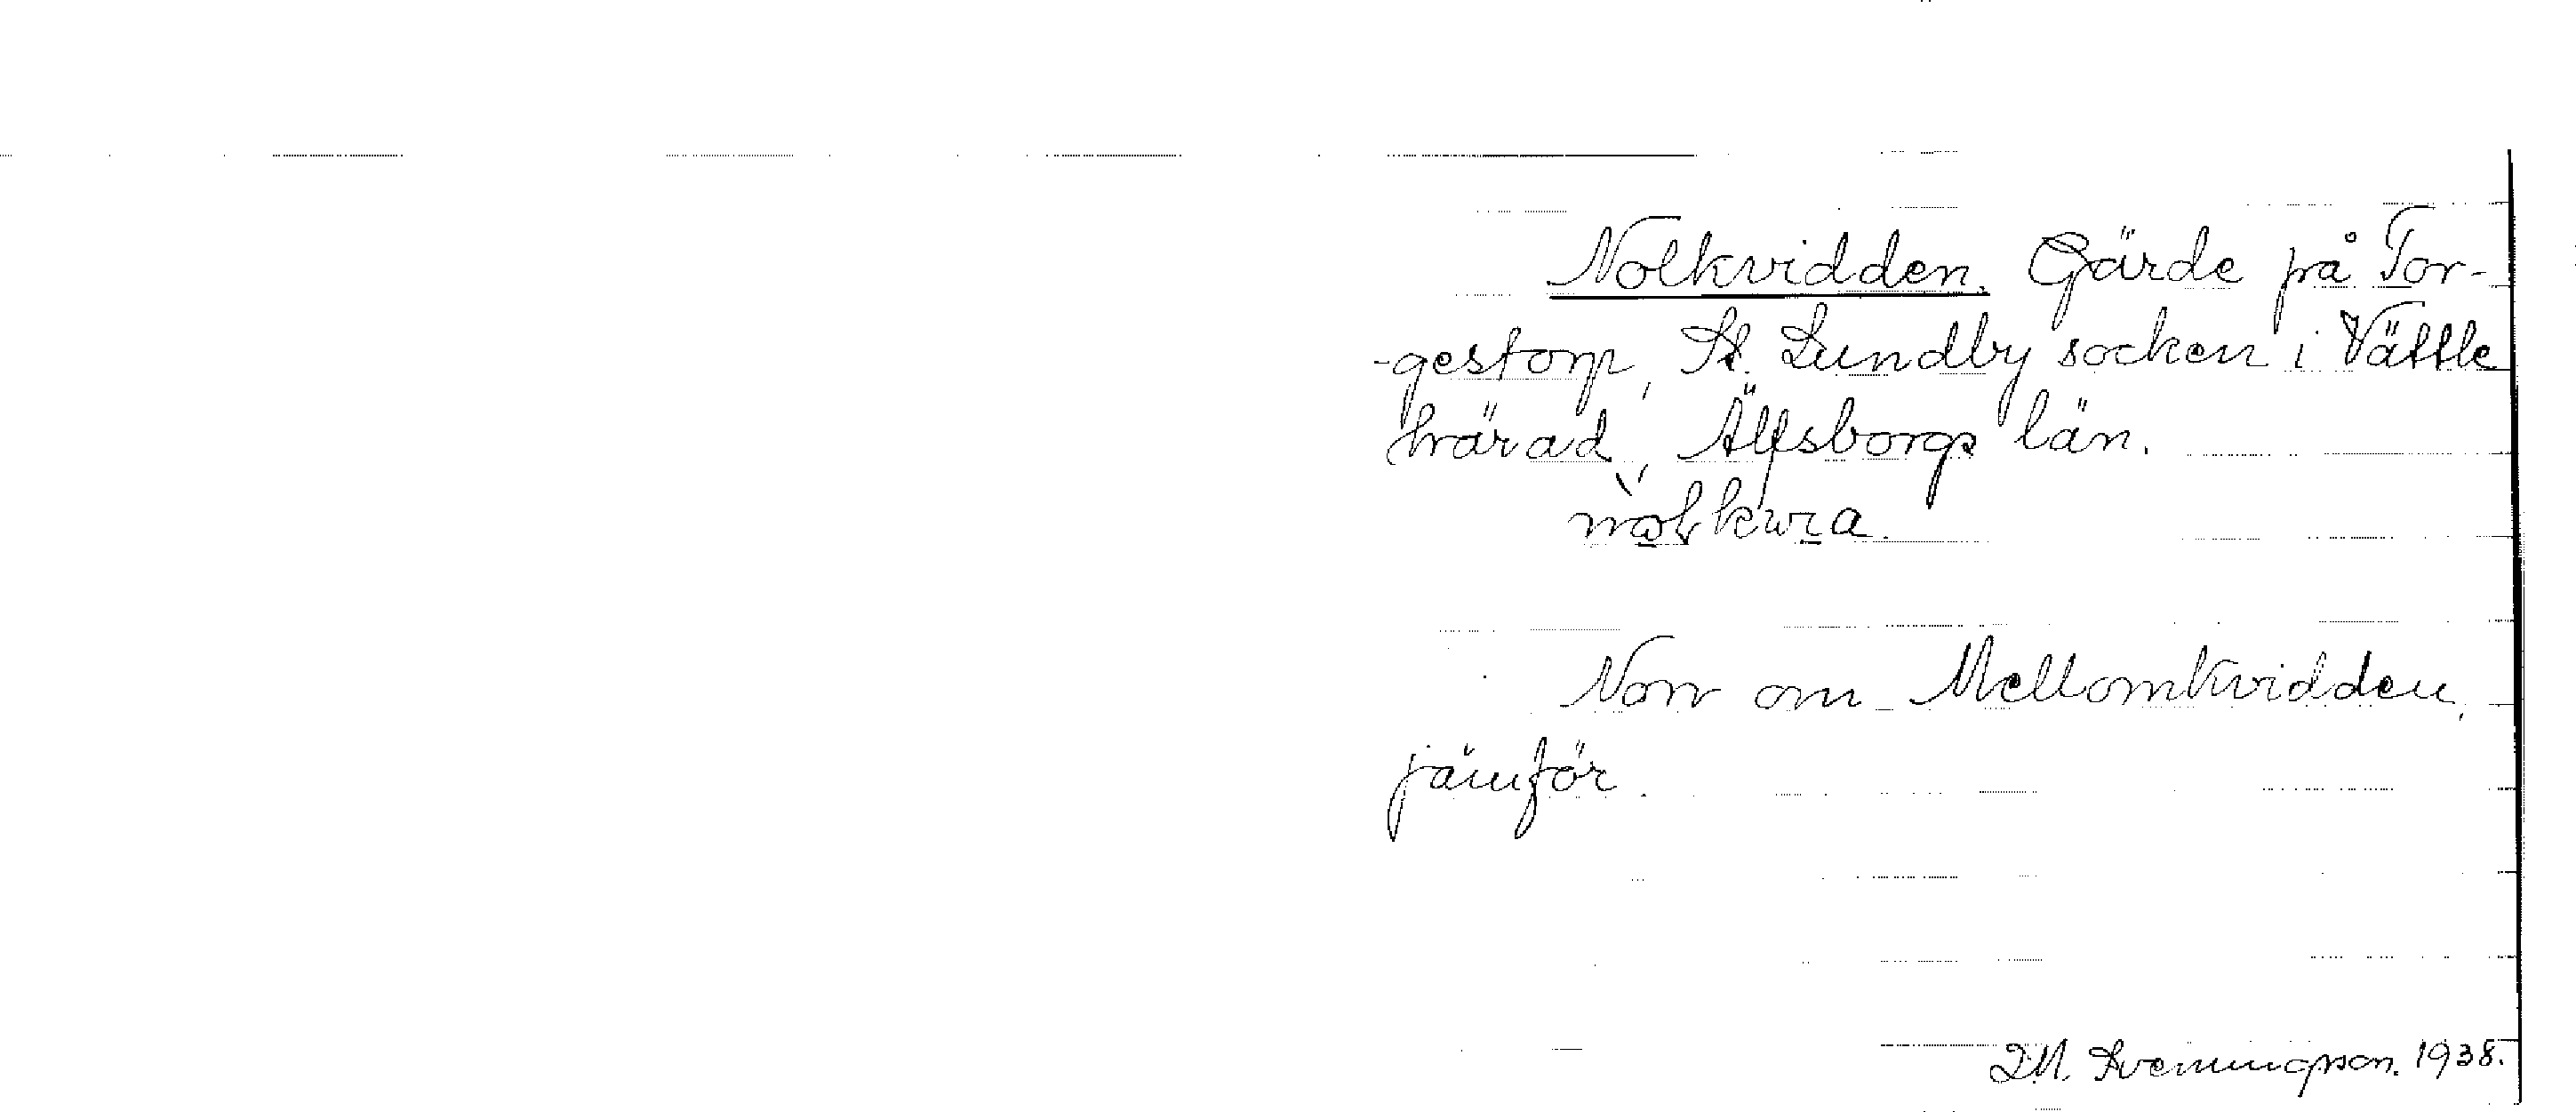 Nolkvidden. Gärde på Tor-
-gestorp, St. Lundby socken i Vättle
härad, Älfsborgs län.
Norr om Mellomkvidden,
jämför.
1938.